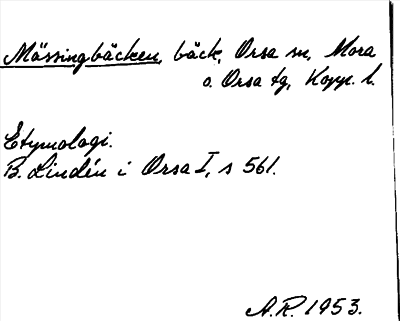 Mässingbäcken, bäck, Orsa sn, Mora
o. Orsa tg, Kopp. l.
Etymologi.
B. Lindén i Orsa I, s 561.
A.R. 1953.